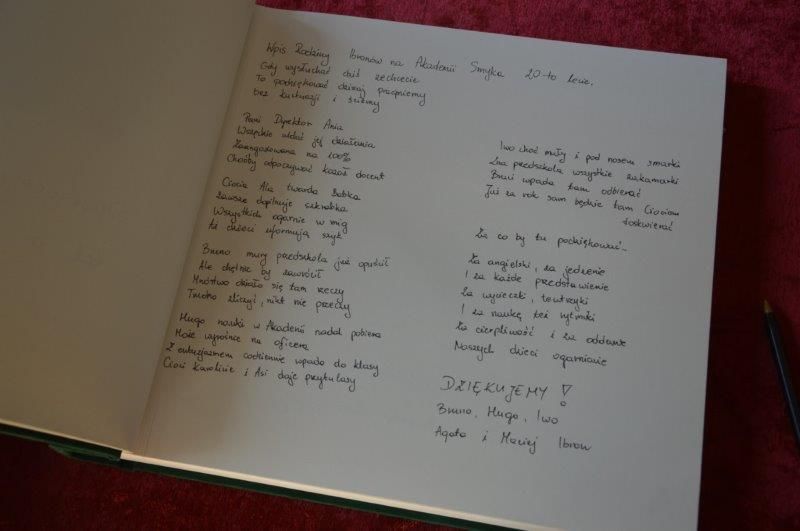 Wpis Rodziny Ibronów na Akademii Smyka 20-to lecie.
Gdy wysłuchać dziś zechcecie
To podziękować dzisiaj pragniemy
bez kurtuazji i ściemy
Pani Dyrektor Ania
Wszędzie widać jej działania
Zaangażowana na 100%
Choćby odpoczywać kazał docent
Ciocia Ala twarda babka
Zawsze dopilnuje
Wszystkich ogarnie w mig
Aż dzieci uformują szyk
Bruno mury przedszkola już opuścił
Ale chętnie by zawrócił
Mnóstwo działo się tam rzeczy
Trudno zliczyć, nikt nie przeczy
Hugo nauki w Akademii nadal pobiera
Może wyrośnie na oficera
Z entuzjazmem codziennie wpada do klasy
Cioci Karolinie i Asi daje przytulasy
Iwo choć mały i pod nosem smarki
Zna przedszkola wszystkie zakamarki
Braci wpada tam odbierać
Już za rok sam będzie tam Ciociom
doskwierać
Za co by tu podziękować...
Za angielski, za jedzenie
I za każde przedstawienie
Za wycieczki, teatrzyki
I za naukę też rytmiki
Za cierpliwość i za oddanie
Naszych dzieci ogarnianie
DZIĘKUJEMY!
Bruno, Hugo, Iwo
Agata i Maciej Ibron